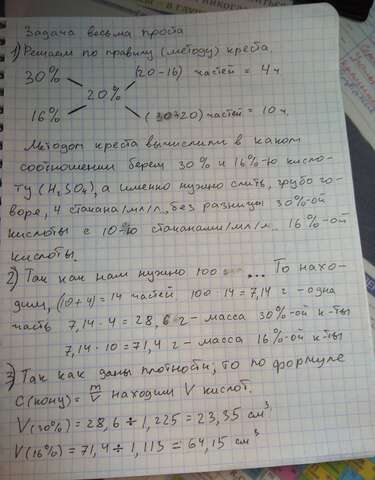 Задача весьма проста
1) Решаем по правилу (методу) креста.
30% (20-16) частей = 4 ч.
20%
16% (30-20) частей = 10 ч.
Методом креста вычислили в каком
соотношении берем 30% и 16%-ю кисло-
ту (H2SO4), а именно нужно слить, грубо го-
воря, 4 стакана/мл/л, без разницы 30%-ой
кислоты с 10-ю стаканами/мл/л 16%-ой
кислоты.
2) Так как нам нужно 100 ... То нахо-
дим, (10+4)=14 частей 100÷14=7,14 г - одна
часть 7,14·4=28,6 г - масса 30%-ой к-ты
7,14·10=71,4 г - масса 16%-ой к-ты
3) Так как даны плотности, то по формуле
C(конц)= m/V находим V кислот.
V(30%)=28,6÷1,225=23,35 см³
V(16%)=71,4÷1,113=64,15 см³